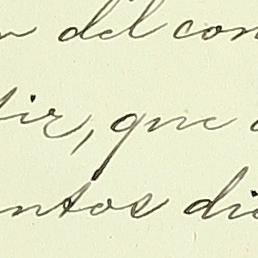 n del con
tir, que
entos di